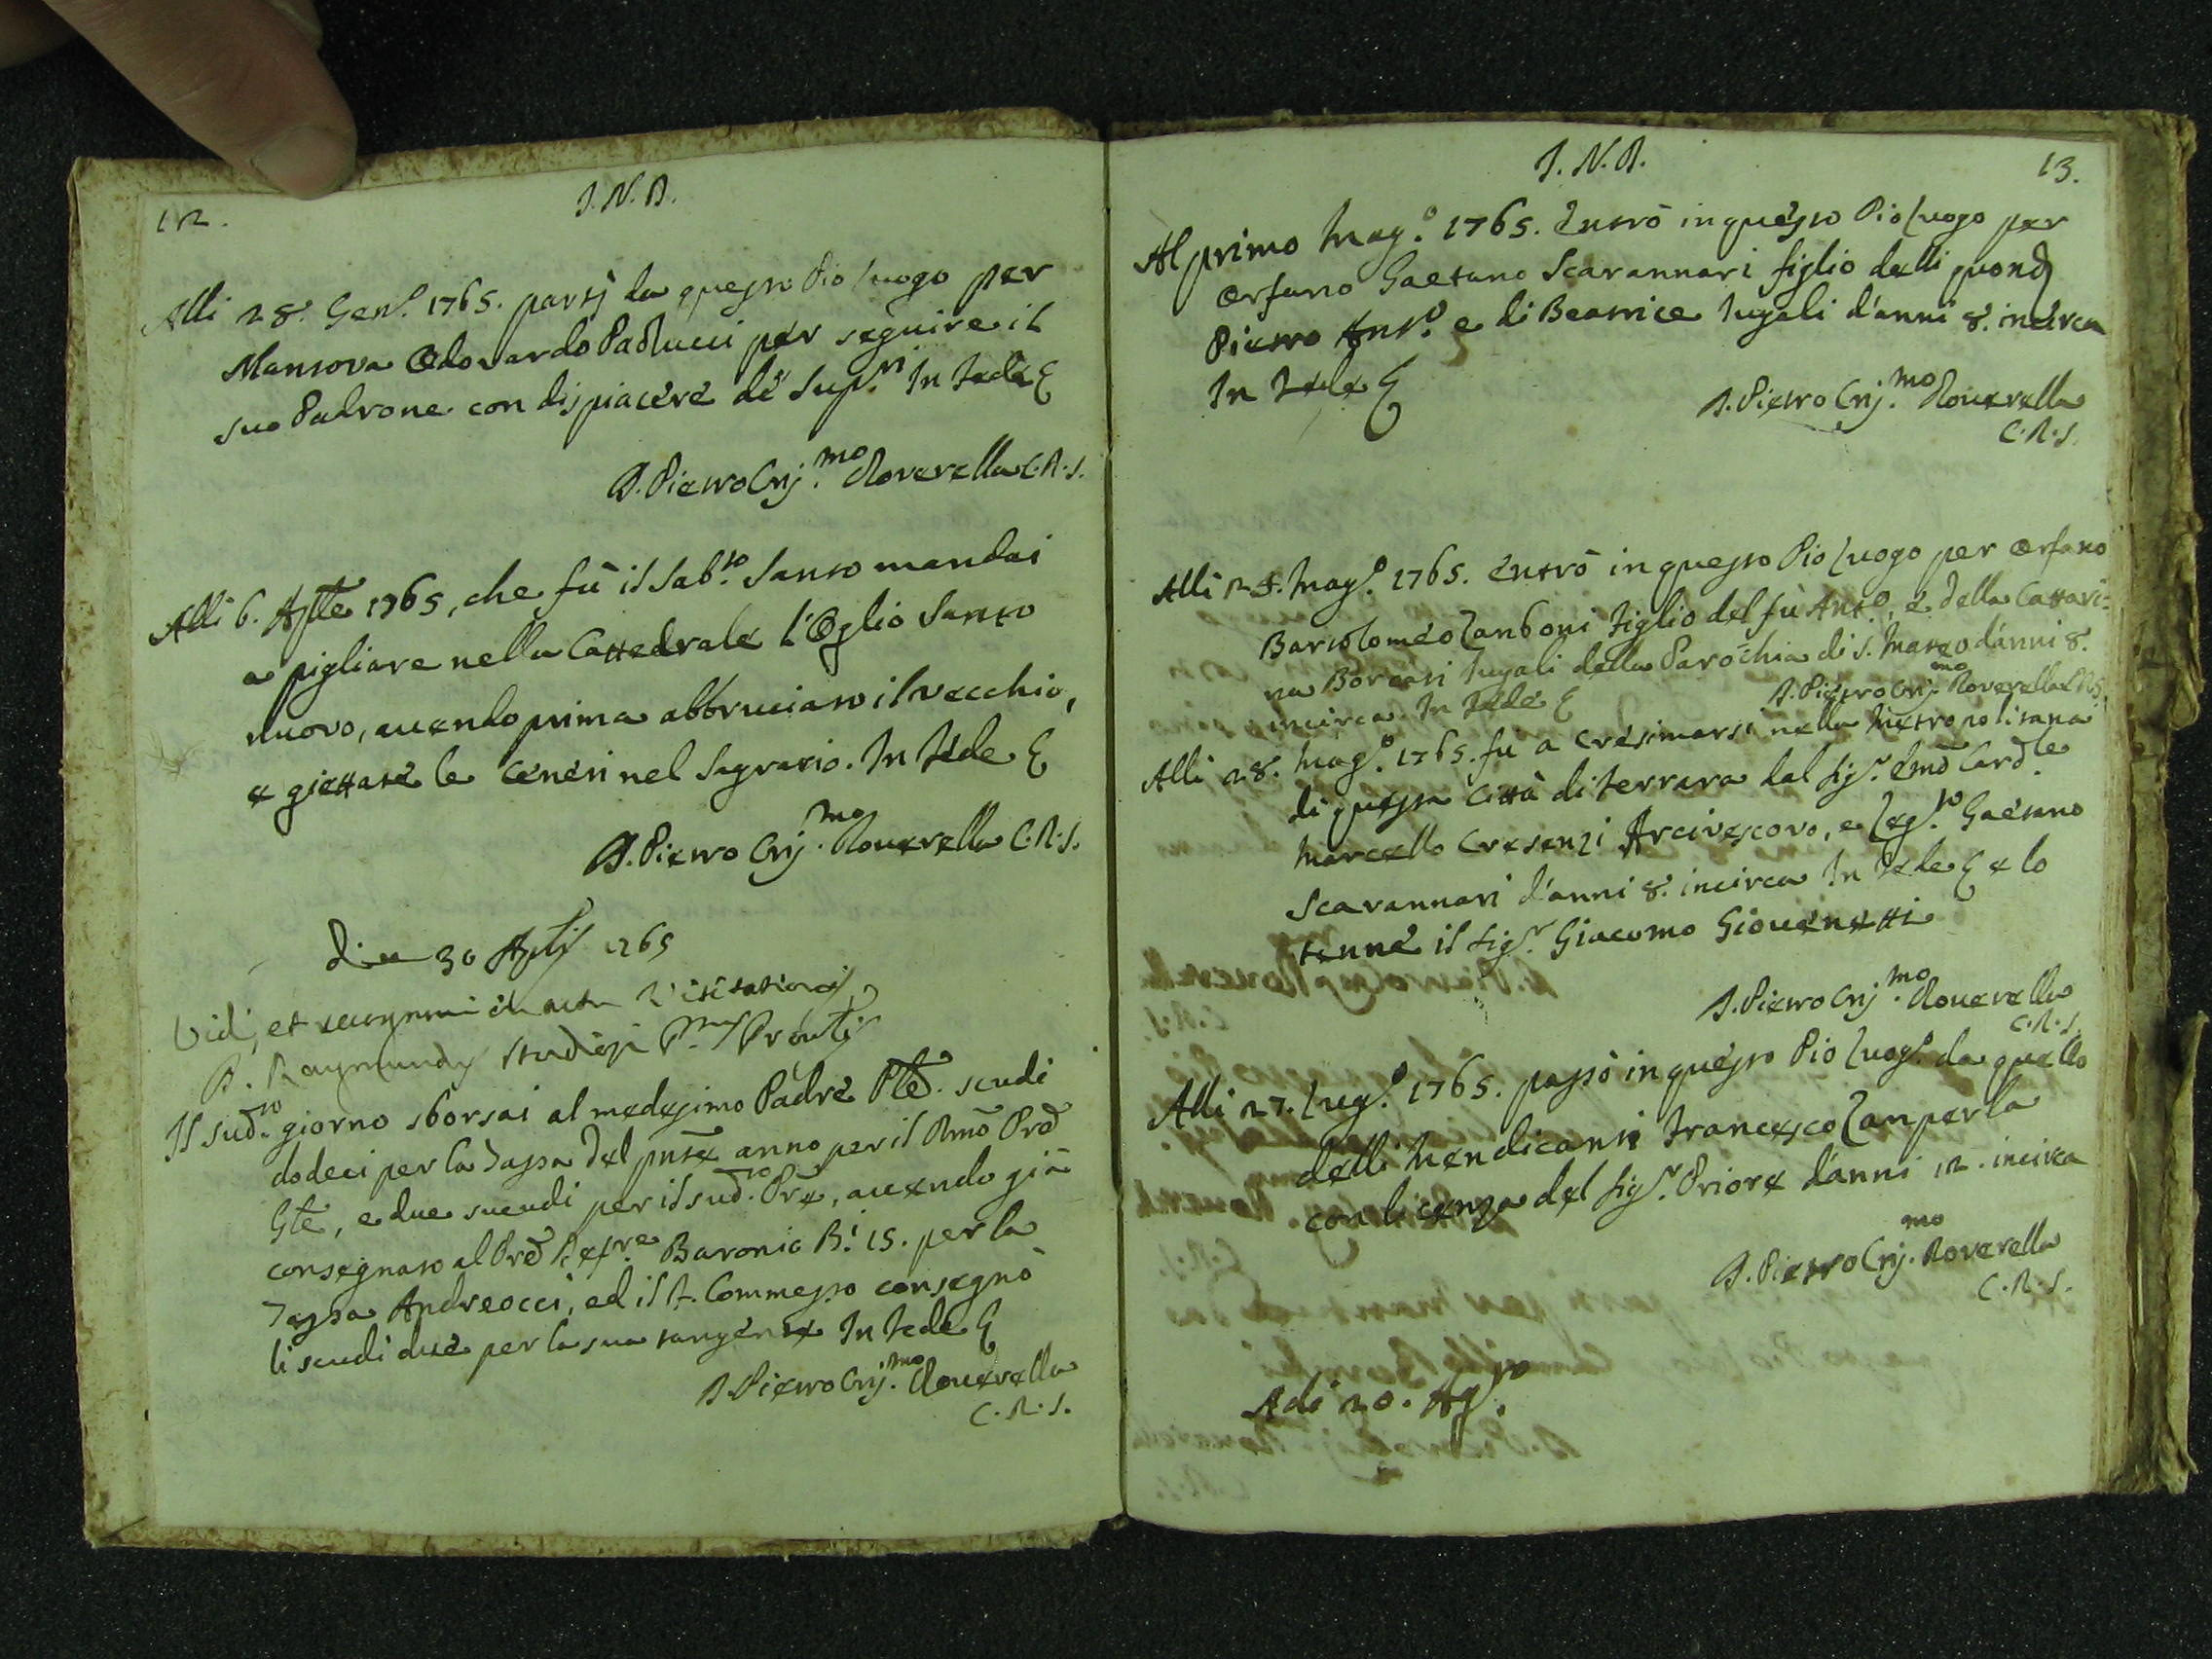 12.
J. N. D.
Alli 28. Gen.º 1765. partj da questo Pio Luogo per
Mantova Odovardo Paolucci per seguire il
suo Padrone con dispiacere dè Sup.ri In Fede
D. Pietro Crij.mo Roverella C. R. S.
Alli 6. Aple 1765, che fù il Sab.to Santo mandai
a pigliare nella Cattedrale l'Oglio Santo
nuovo, avendo prima abbruciato il vecchio,
e giettate le ceneri nel Sagrario. In Fede
D. Pietro Crij.mo Roverella C. R. S.
Die 30 Aplis 1765
Vidi, et in actu Visitationis
D. Raymundus Studiosi
Il sud.to giorno sborsai al medesimo Padre Ple. scudi
dodeci per la Tassa del pnte anno per il Rmo Prd
Gle, e due scudi per il sud.to Pre, avendo già
consegnato al Prd Baronio 15. per la
Tassa Andreocci, ed il Commesso consegnò
li scudi due per la sua tangente In Fede
D. Pietro Crij.mo Roverella
C. R. S.
J. N. D.
13.
Al primo Mag.º 1765. Entrò in questo Pio Luogo per
Orfano Gaetano Scavannari figlio delli quond
Pietro Ant.º e di Beatrice Jugali d'anni 8. incirca
In Fede
D. Pietro Crij.mo Roverella
C. R. S.
Alli 28. Mag.º 1765. Entrò in questo Pio Luogo per Orfano
Bartolomeo Zanboni Figlio del fù Ant.º, e della Cattari=
na Borcari Jugali della Parochia di S. Matteo d'anni 8.
incirca. In Fede
D. Pietro Crij.mo Roverella C. R. S.
Alli 28. Mag.º 1765. fu a cresimarsi nella Metropolitana
di questa Città di Ferrara dal Sig.r Emo Cardle
Marcello Cresenzi Arcivescovo, e Leg.to Gaetano
Scavannari d'anni 8. incirca In Fede e lo
tenne il Sig.r Giacomo Giovenetti
D. Pietro Crij.mo Roverella
C. R. S.
Alli 27. Lug.º 1765. passò in questo Pio Luog.º da quello
delli Mendicanti Francesco Zanperla
con licenza del Sig.r Priore d'anni 12. incirca
D. Pietro Crij.mo Roverella
C. R. S.
Adi 20. Ag.to